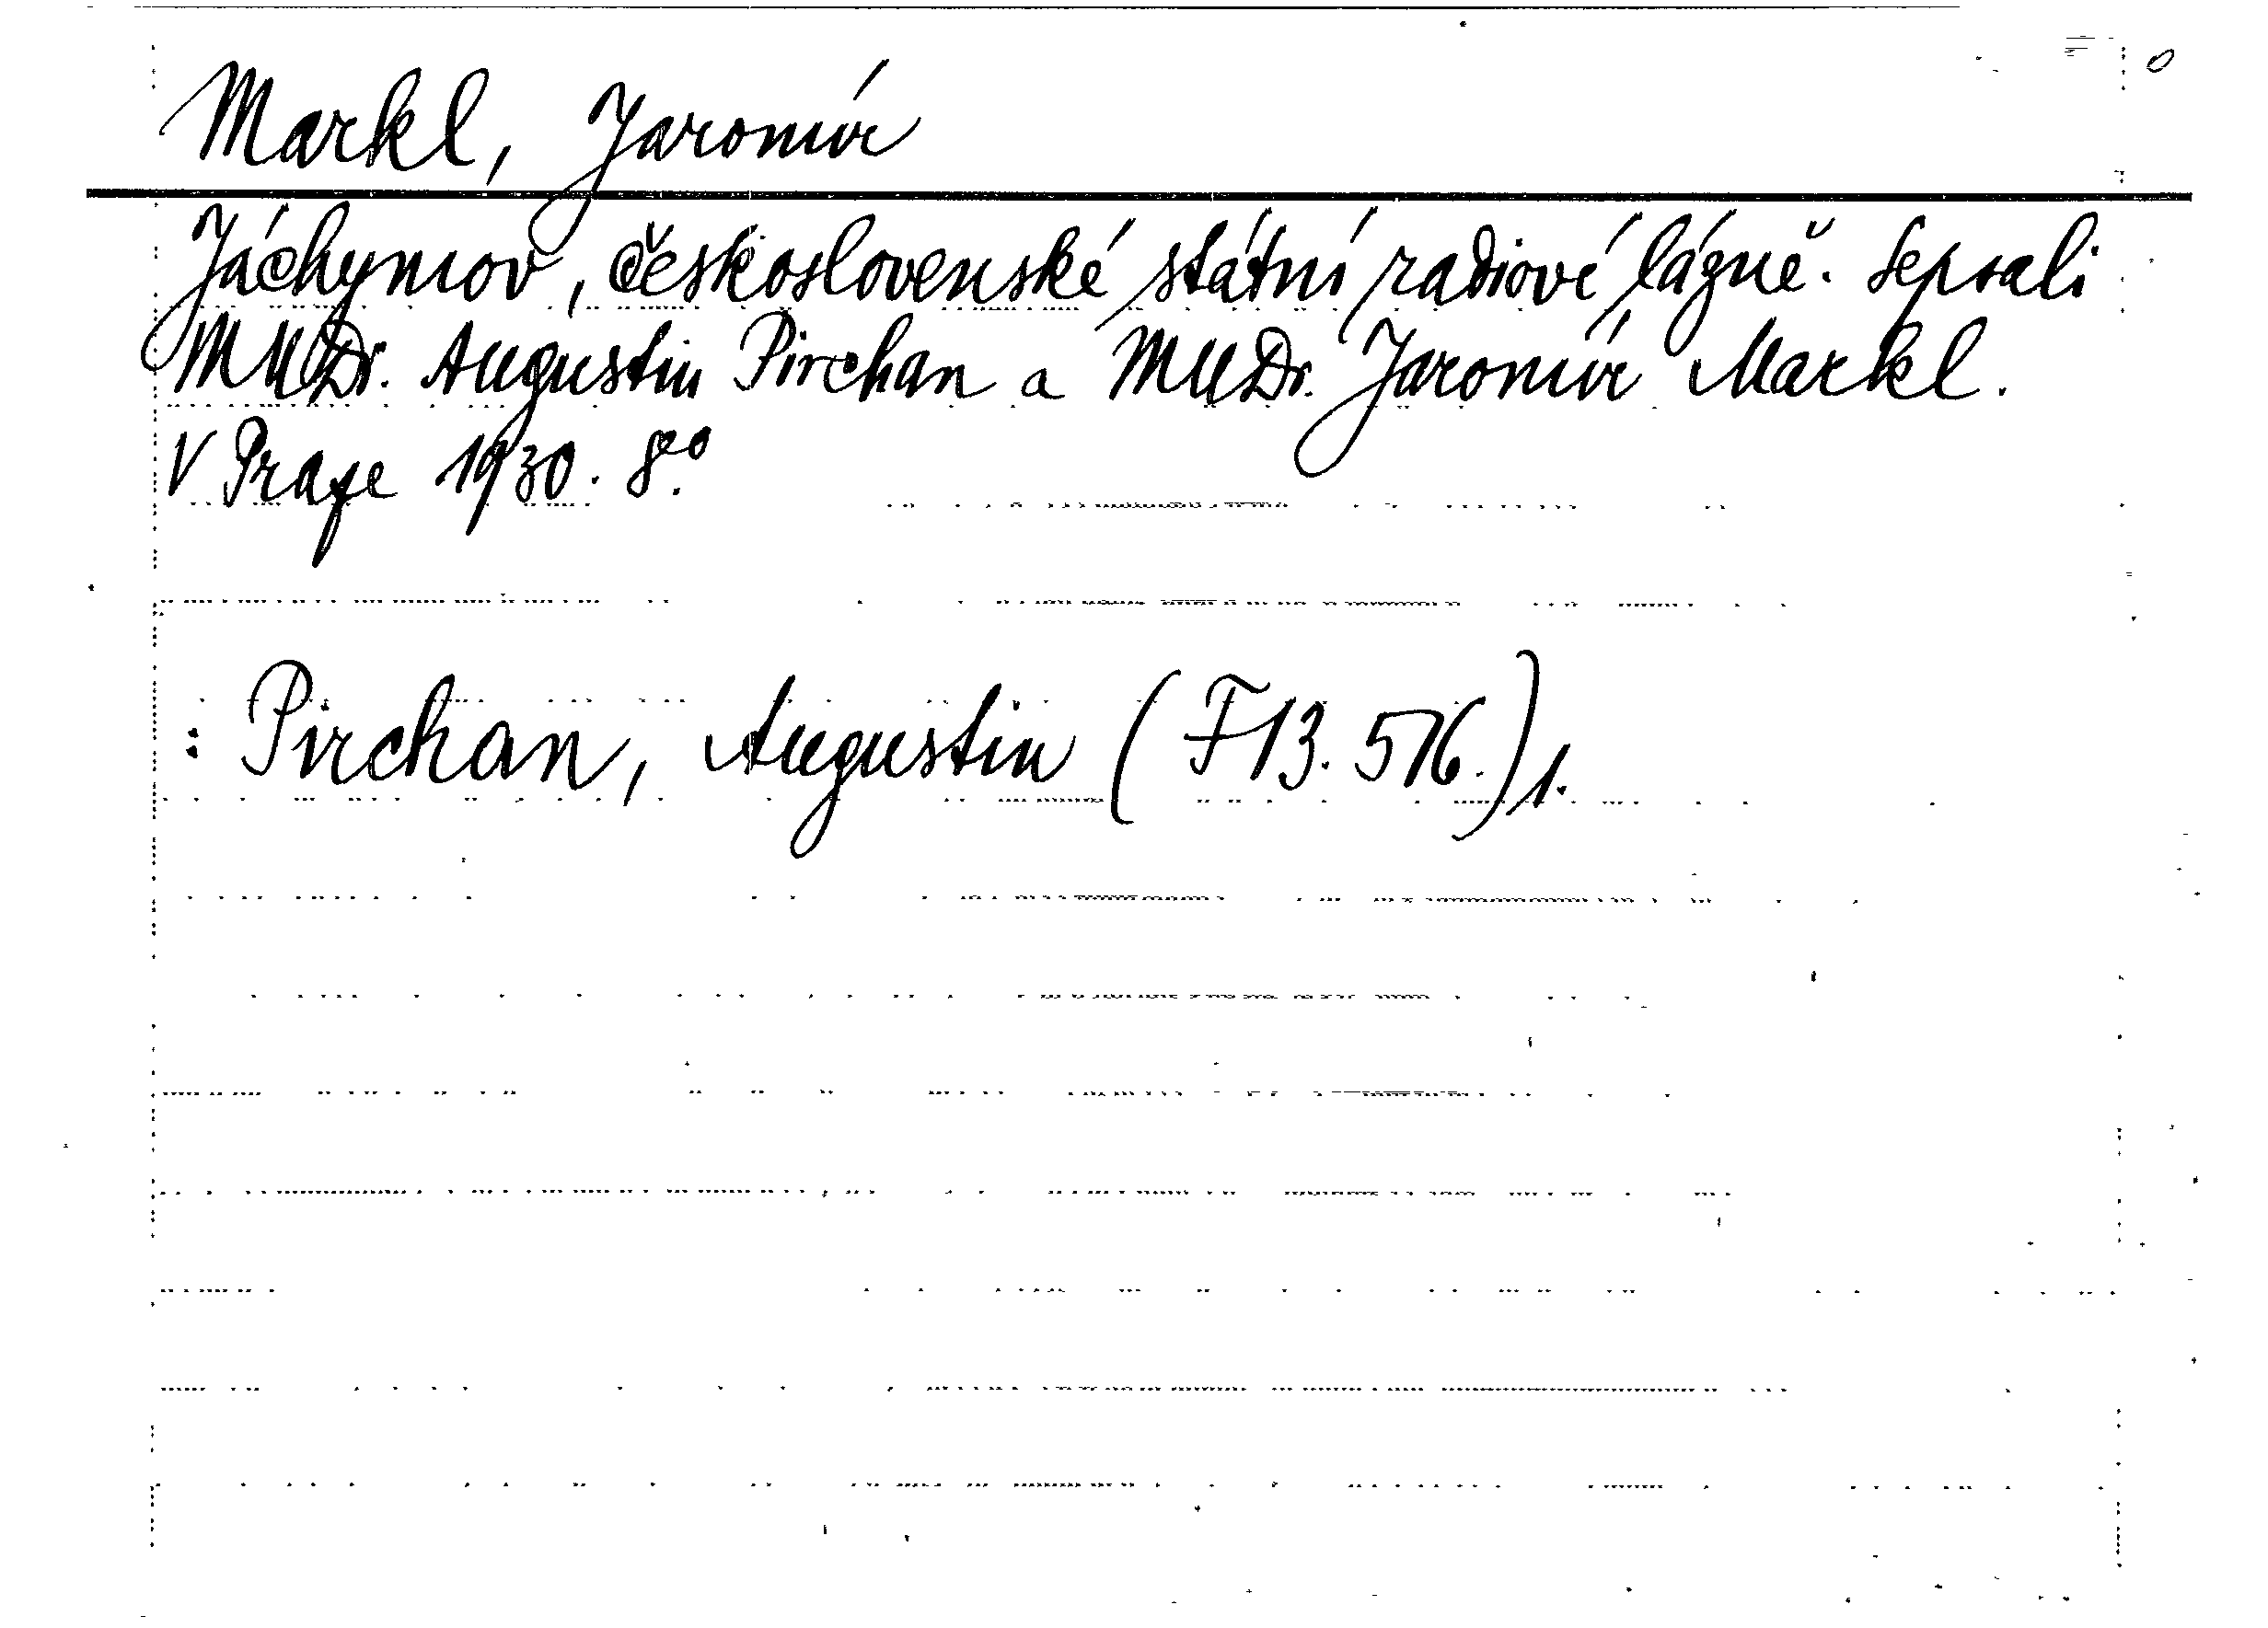 Markl, Jaromír
Jáchymov, československé státní radiové lázně. Sepsali
MUDr. Augustin Pirchan a MUDr. Jaromír Markl.
V Praze 1930. 8°.
: Pirchan, Augustin (F 13.576.) 1.